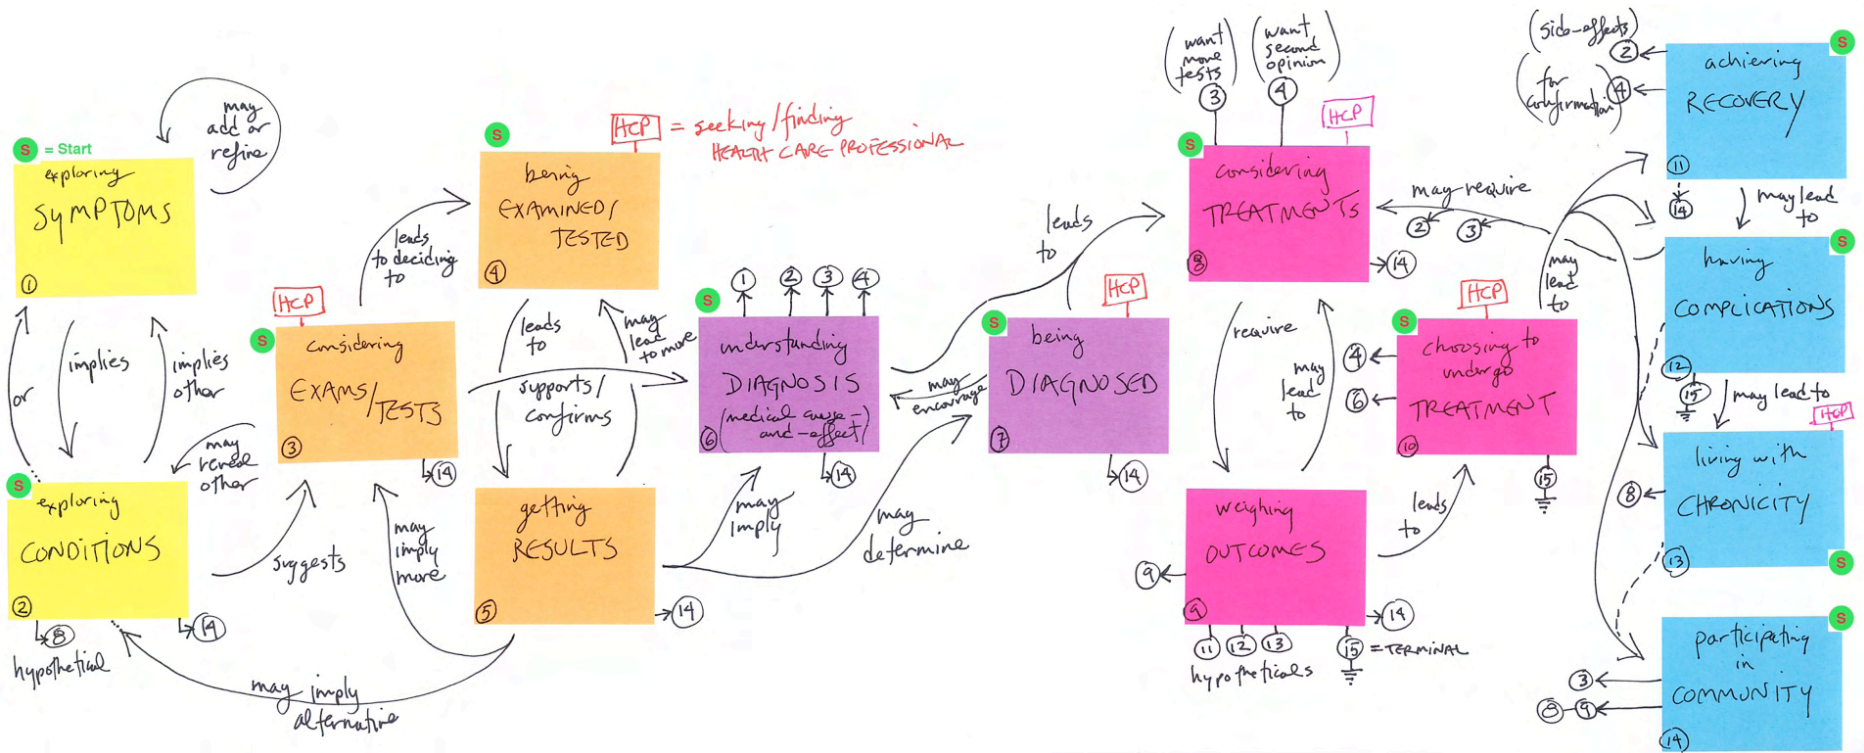 S = Start
exploring
SYMPTOMS
1
may
add or
refine
or
implies
implies
other
S
exploring
CONDITIONS
2
8
hypothetical
14
may
reveal
other
suggests
HCP
S
considering
EXAMS/
TESTS
3
14
leads
to deciding
to
may
imply
more
may imply
alternative
S
HCP = seeking/finding
HEALTH CARE PROFESSIONAL
being
EXAMINED/
TESTED
4
leads
to
may
lead
to more
supports/
confirms
getting
RESULTS
5
14
may
imply
may
determine
1
2
3
4
S
understanding
DIAGNOSIS
(medical cause-
and-effect)
6
14
may
encourage
leads
to
HCP
S
being
DIAGNOSED
7
14
(want
more
tests)
3
(want
second
opinion)
4
HCP
S
considering
TREATMENTS
8
14
require
may
lead
to
weighing
OUTCOMES
9
9
14
11
12
13
hypotheticals
15 = TERMINAL
leads
to
may require
2
3
HCP
S
choosing to
undergo
TREATMENT
10
4
6
15
may
lead
to
(side-effects)
2
(for
confirmation)
4
S
achieving
RECOVERY
11
14
may lead
to
S
having
COMPLICATIONS
12
15
may lead to
HCP
living with
CHRONICITY
13
8
S
S
participating
in
COMMUNITY
14
3
8 9